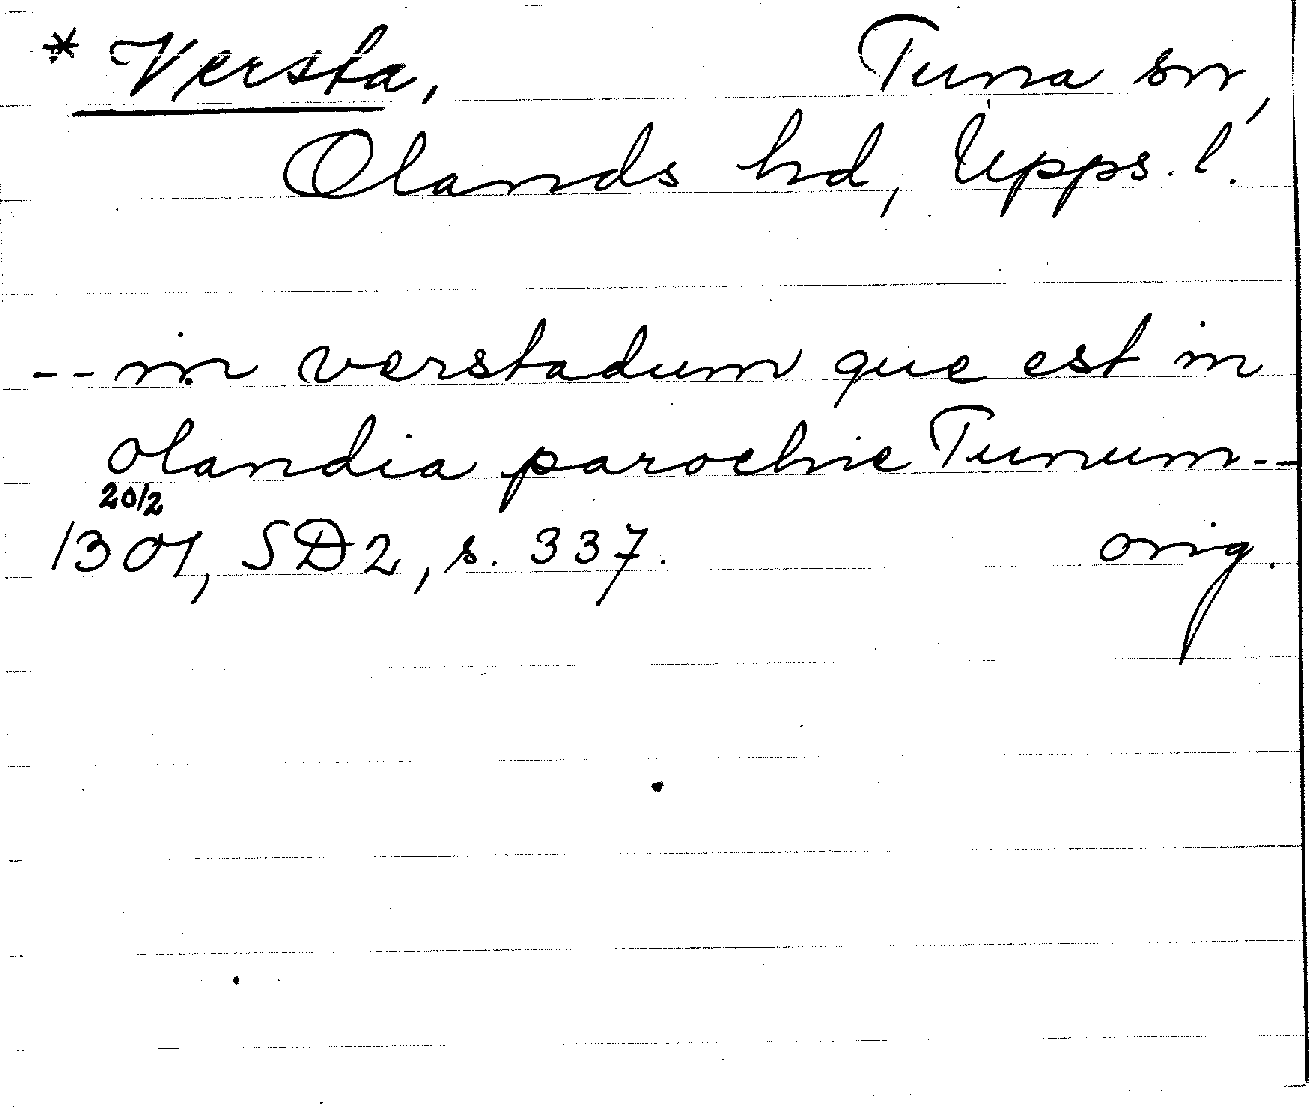 * Versta, Tuna sn,
Olands hd, Upps. l.
-- in verstadum que est in
olandia parochie Tunum --
20/2
1301, SD2, s. 337. orig.